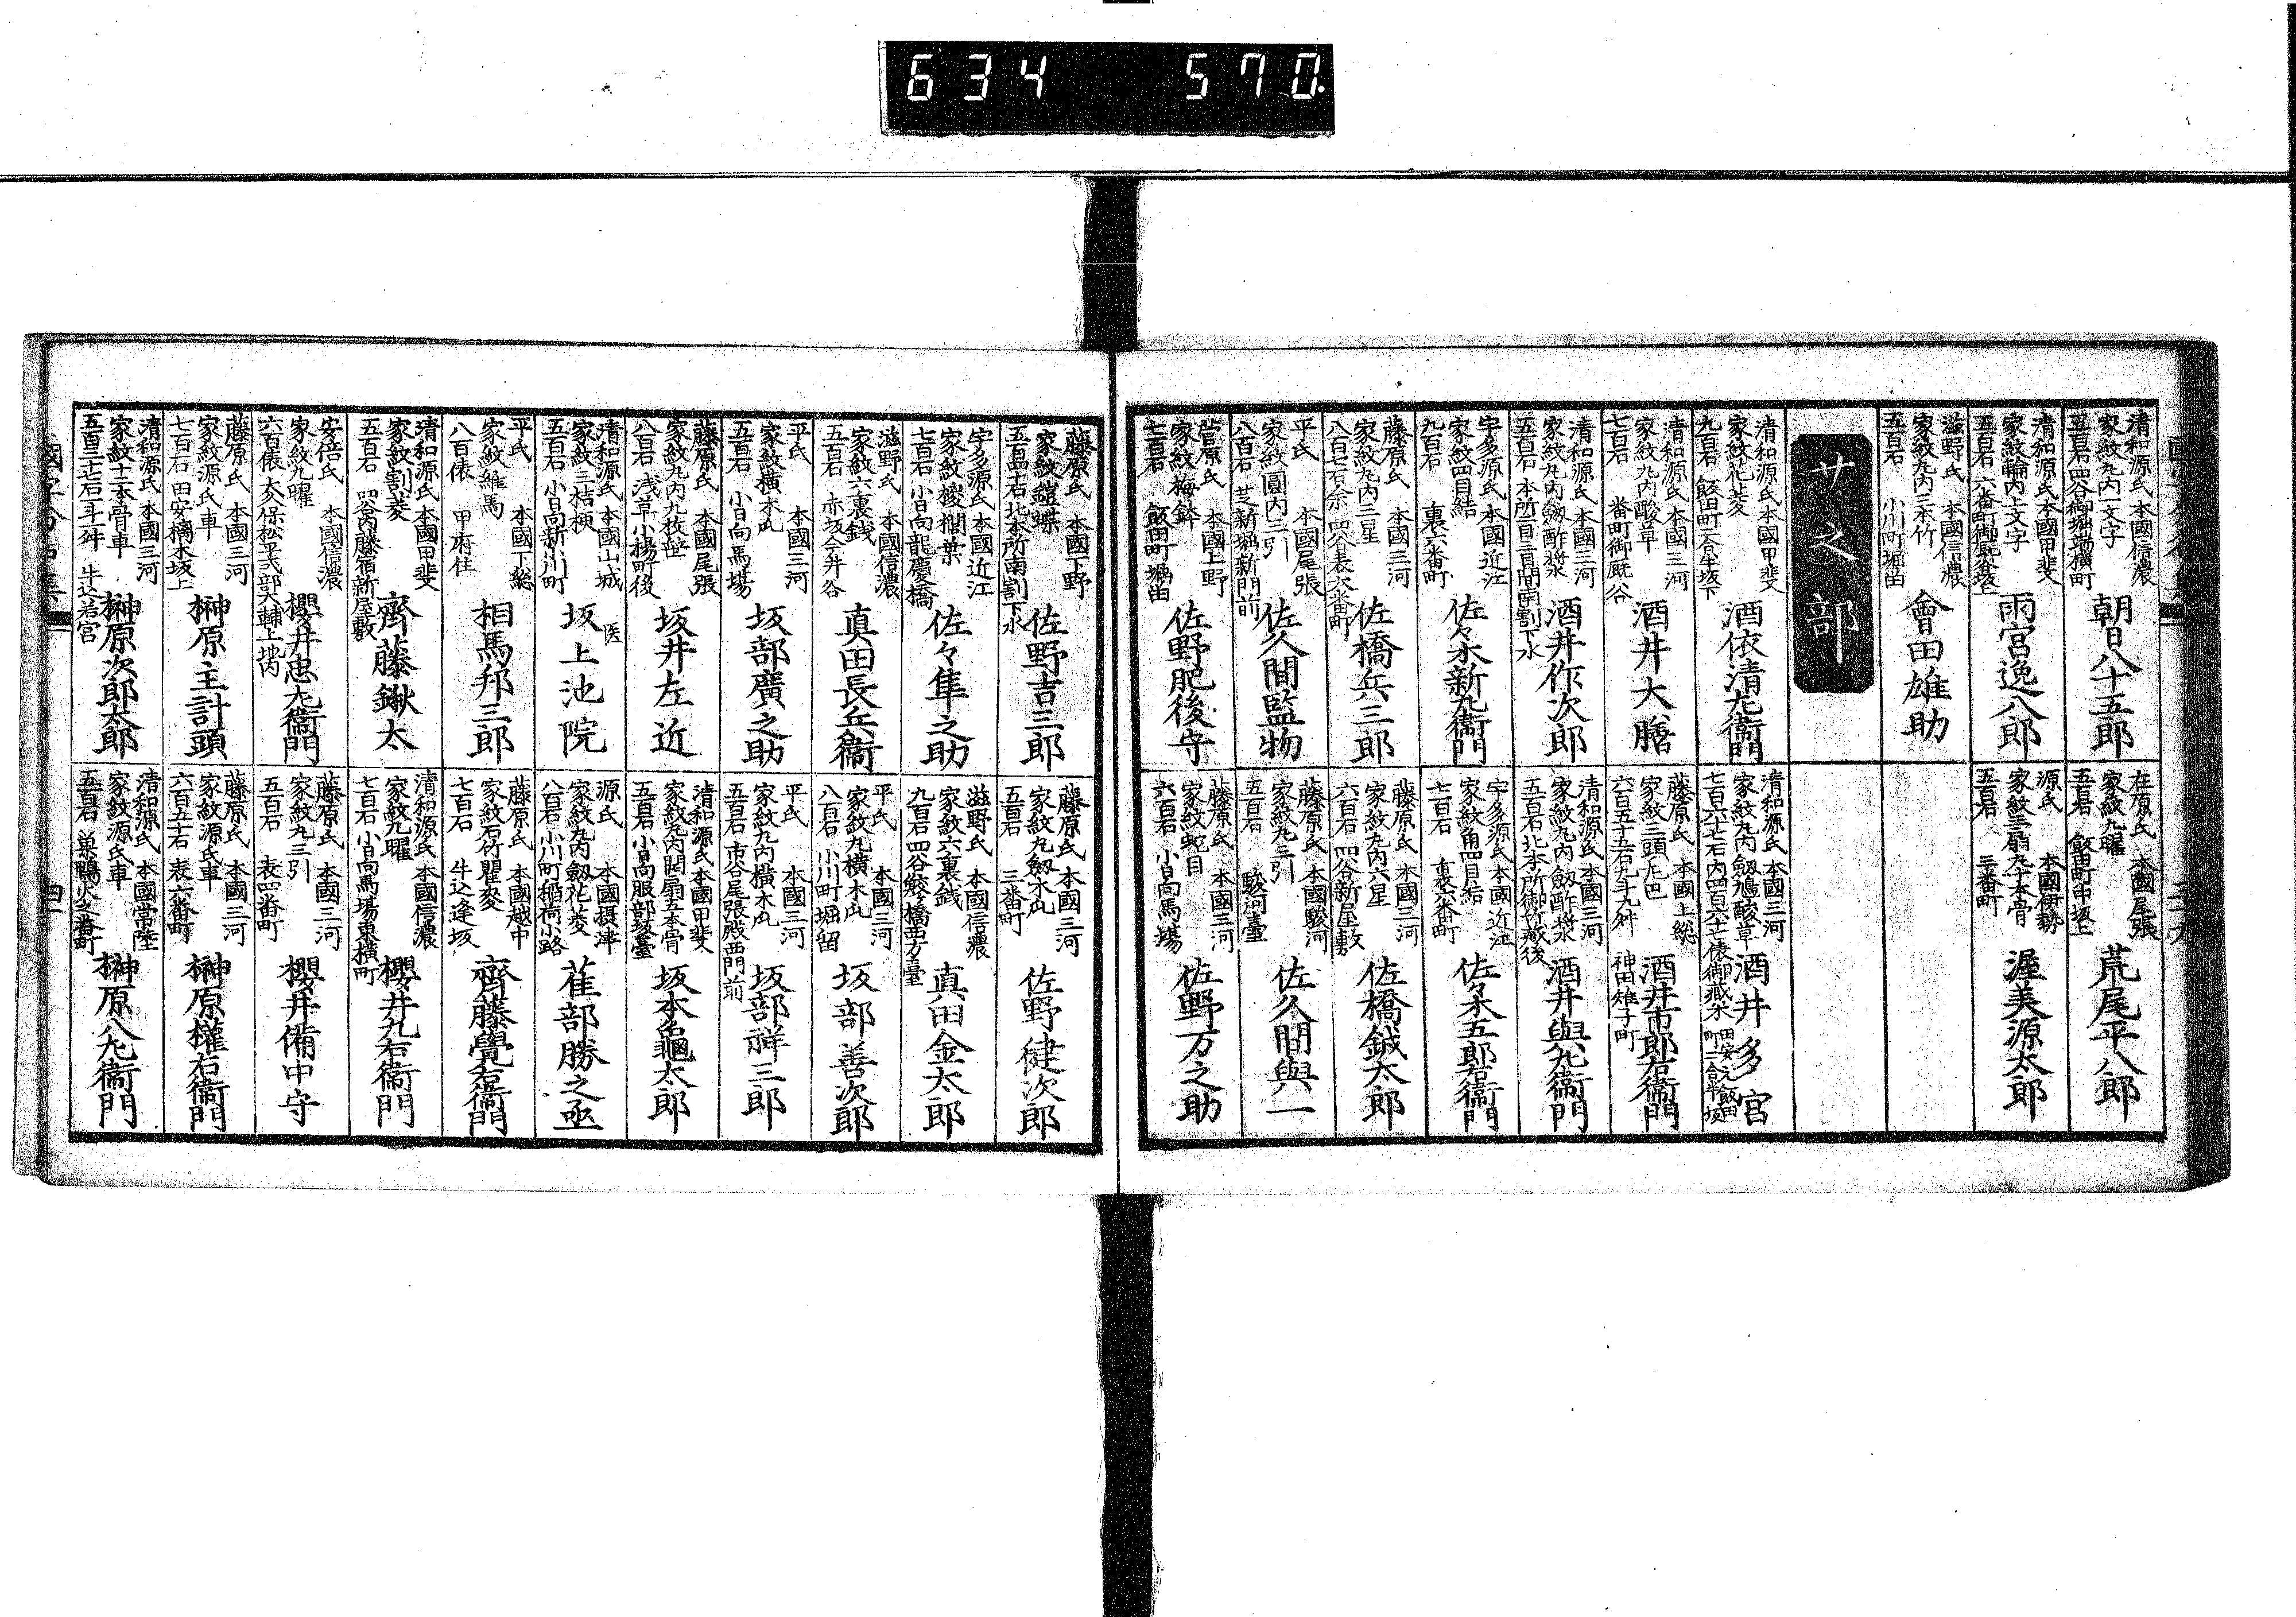 634 570
清和源氏 本國信濃
家紋丸内一文字
五百石 四谷御堀端横町
朝日八十五郎
在原氏 本國尾張
家紋九曜
五百石 飯田町中坂上
荒尾平八郎
清和源氏 本國甲斐
家紋輪内二文字
五百石 六番町御厩谷坂上
雨宮逸八郎
源氏 本國伊勢
家紋三扇九十本骨
五百石 三番町
渥美源太郎
滋野氏 本國信濃
家紋丸内三本竹
五百石 小川町堀留
會田雄助
サ之部
清和源氏 本國甲斐
家紋花菱
九百石 飯田町二合半坂下
酒依清左衞門
清和源氏 本國三河
家紋丸内劔鳩酸草
七百六十七石内四百六十七俵御蔵米
酒井多宮
清和源氏 本國三河
家紋丸内酸草
七百石 番町御厩谷
酒井大膳
藤原氏 本國上総
家紋三頭左巴
六百五十五石九斗九舛 神田雉子町
酒井市郎右衞門
清和源氏 本國三河
家紋丸内劔酢漿
五百石 本所二百三間南割下水
酒井作次郎
清和源氏 本國三河
家紋丸内劔酢漿
五百石 北本所御竹蔵後
酒井與左衞門
宇多源氏 本國近江
家紋四目結
九百石 裏六番町
佐々木新左衞門
宇多源氏 本國近江
家紋角四目結
七百石 裏六番町
佐々木五郎右衞門
藤原氏 本國三河
家紋丸内三星
八百七石余 四谷表大番町
佐橋兵三郎
藤原氏 本國三河
家紋丸内六星
六百石 四谷新屋敷
佐橋鉞太郎
平氏 本國尾張
家紋圓内三引
八百石 芝新堀新門前
佐久間監物
藤原氏 本國駿河
家紋丸三引
五百石 駿河臺
佐久間與一
菅原氏 本國上野
家紋梅鉢
七百石 飯田町堀留
佐野肥後守
藤原氏 本國三河
家紋蛇目
六百石 小日向馬場
佐野万之助
藤原氏 本國下野
家紋鎧蝶
五百四十石 北本所南割下水
佐野吉三郎
藤原氏 本國三河
家紋丸劔木瓜
五百石 三番町
佐野健次郎
宇多源氏 本國近江
家紋棕櫚葉
七百石 小日向龍慶橋
佐々隼之助
滋野氏 本國信濃
家紋六裏銭
九百石 四谷鮫ケ橋西方臺
真田金太郎
滋野氏 本國信濃
家紋六裏銭
五百石 赤坂今井谷
真田長兵衞
平氏 本國三河
家紋丸横木瓜
八百石 小川町堀留
坂部善次郎
平氏 本國三河
家紋横木瓜
五百石 小日向馬場
坂部廣之助
平氏 本國三河
家紋丸内横木瓜
五百石 市谷尾張殿西門前
坂部祥三郎
藤原氏 本國尾張
家紋丸内九枚笹
八百石 浅草小揚町後
坂井左近
清和源氏 本國甲斐
家紋丸内開扇五本骨
五百石 小日向服部坂臺
坂本龜太郎
清和源氏 本國山城
家紋三桔梗
五百石 小日向新小川町
医
坂上池院
源氏 本國摂津
家紋丸内劔花菱
八百石 小川町稲荷小路
雀部勝之亟
平氏 本國下総
家紋維馬
八百俵 甲府住
相馬邦三郎
藤原氏 本國越中
家紋石竹瞿麥
七百石 牛込逢坂
齊藤覺右衞門
清和源氏 本國甲斐
家紋割菱
五百石 四谷内藤宿新屋敷
齊藤鍬太
清和源氏 本國信濃
家紋九曜
七百石 小日向馬場東横町
櫻井九右衞門
安倍氏 本國信濃
家紋九曜
六百俵 大久保松平式部大輔上地内
櫻井忠左衞門
藤原氏 本國三河
家紋丸三引
五百石 表四番町
櫻井備中守
藤原氏 本國三河
家紋源氏車
七百石 田安橋木坂上
榊原主計頭
藤原氏 本國三河
家紋源氏車
六百五十石 表六番町
榊原權右衞門
清和源氏 本國三河
家紋十二本骨車
五百三十七石二斗二舛 牛込若宮
榊原次郎太郎
清和源氏 本國常陸
家紋源氏車
五百石 巣鴨火之番町
榊原八左衞門